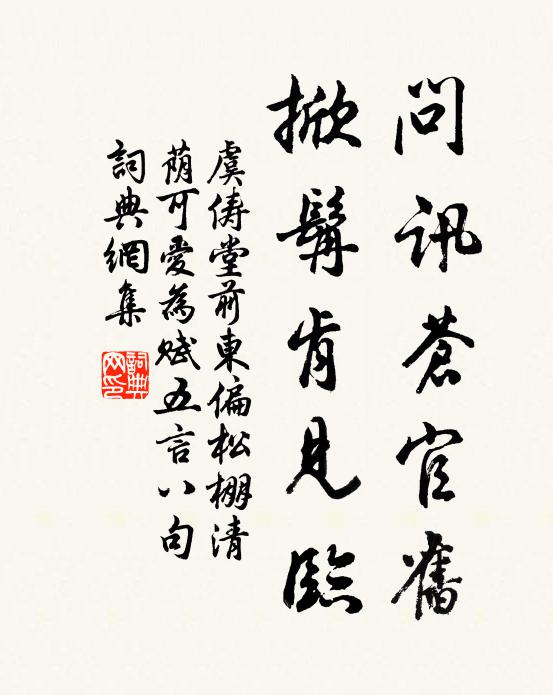 問訊蒼官舊
掀髯肯見臨
虞儔堂前東偏松棚清
蔭可愛為賦五言八句
詞典網集
詞典網印